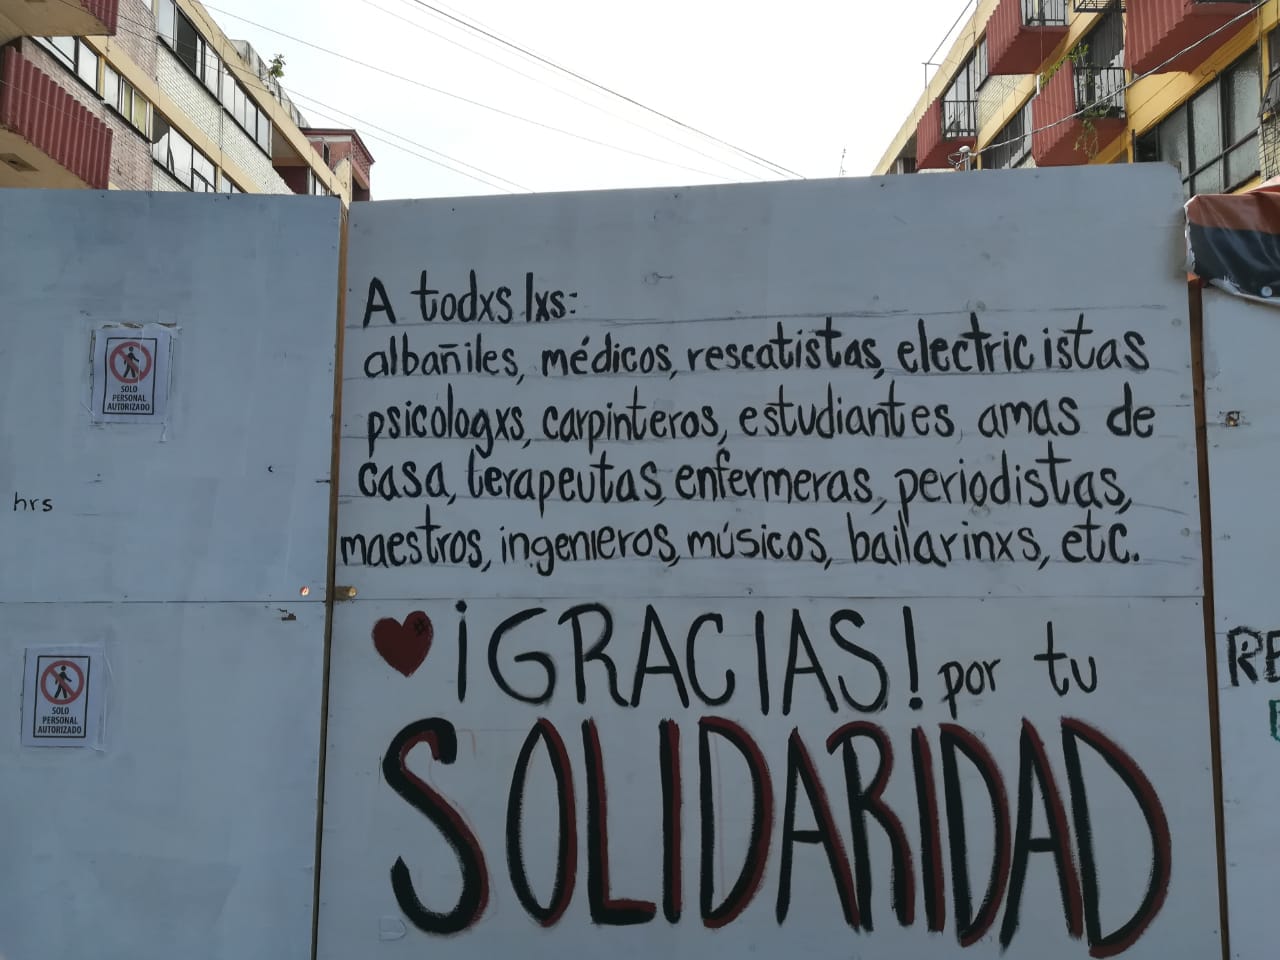 A todxs lxs:
albañiles, médicos, rescatistas, electricistas
psicologxs, carpinteros, estudiantes, amas de
casa, terapeutas, enfermeras, periodistas,
maestros, ingenieros, músicos, bailarinxs, etc.
¡GRACIAS! por tu
SOLIDARIDAD
SOLO
PERSONAL
AUTORIZADO
hrs
SOLO
PERSONAL
AUTORIZADO
RE